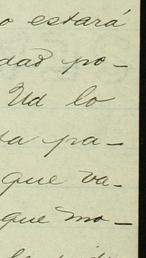 o estará
dad po-
Ud lo
la pa-
que va-
que mo-